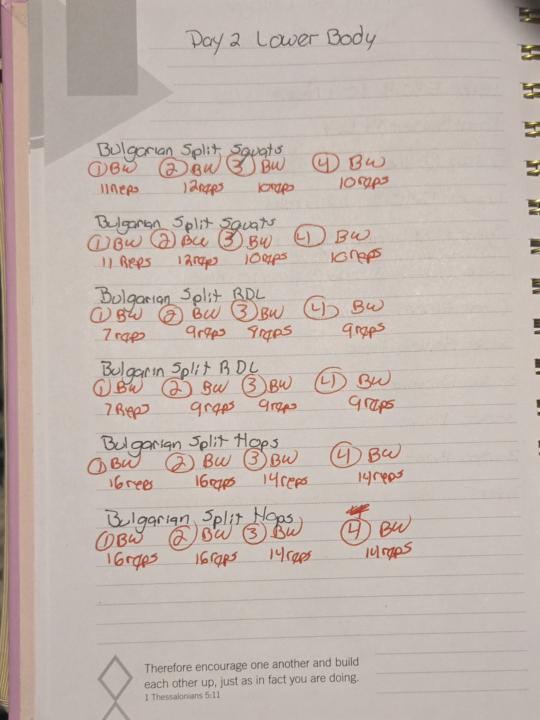 Day 2 Lower Body
Bulgarian Split Squats
① BW ② BW ③ BW ④ BW
11 Reps 12 reps 10 reps 10 reps
Bulgarian Split Squats
① BW ② BW ③ BW ④ BW
11 Reps 12 reps 10 reps 10 reps
Bulgarian Split RDL
① BW ② BW ③ BW ④ BW
7 reps 9 reps 9 reps 9 reps
Bulgarin Split RDL
① BW ② BW ③ BW ④ BW
7 Reps 9 reps 9 reps 9 reps
Bulgarian Split Hops
① BW ② BW ③ BW ④ BW
16 reps 16 reps 14 reps 14 reps
Bulgarian Split Hops
① BW ② BW ③ BW ④ BW
16 reps 16 reps 14 reps 14 reps
Therefore encourage one another and build
each other up, just as in fact you are doing.
1 Thessalonians 5:11